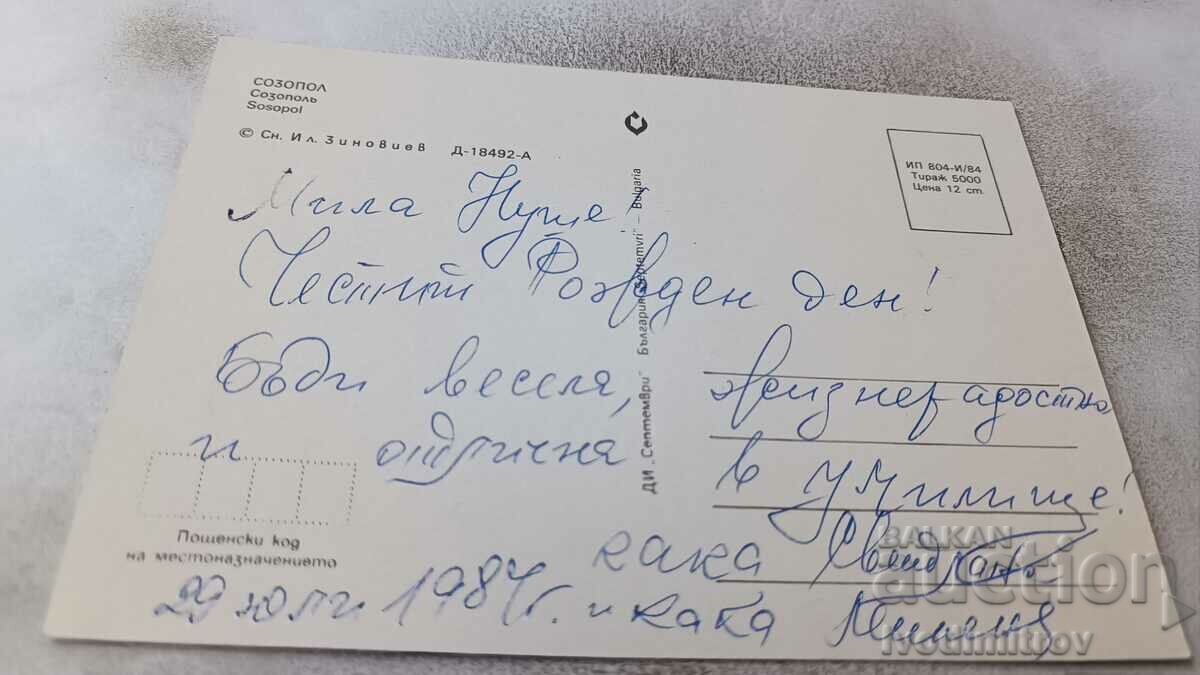 СОЗОПОЛ
Созополь
Sosopol
© Сн. Ил. Зиновиев Д-18492-А
ИП 804-И/84
Тираж 5000
Цена 12 ст.
ДИ „Септември" България „Septemvri" – Bulgaria
Мила Нуше!
Честит Рожден ден!
Бъди весела, жизнерадостна
и отлична в училище!
кака
29 юли 1987г. и кака Милена
Пощенски код
на местоназначението
BALKAN
auction
ivodimitrov